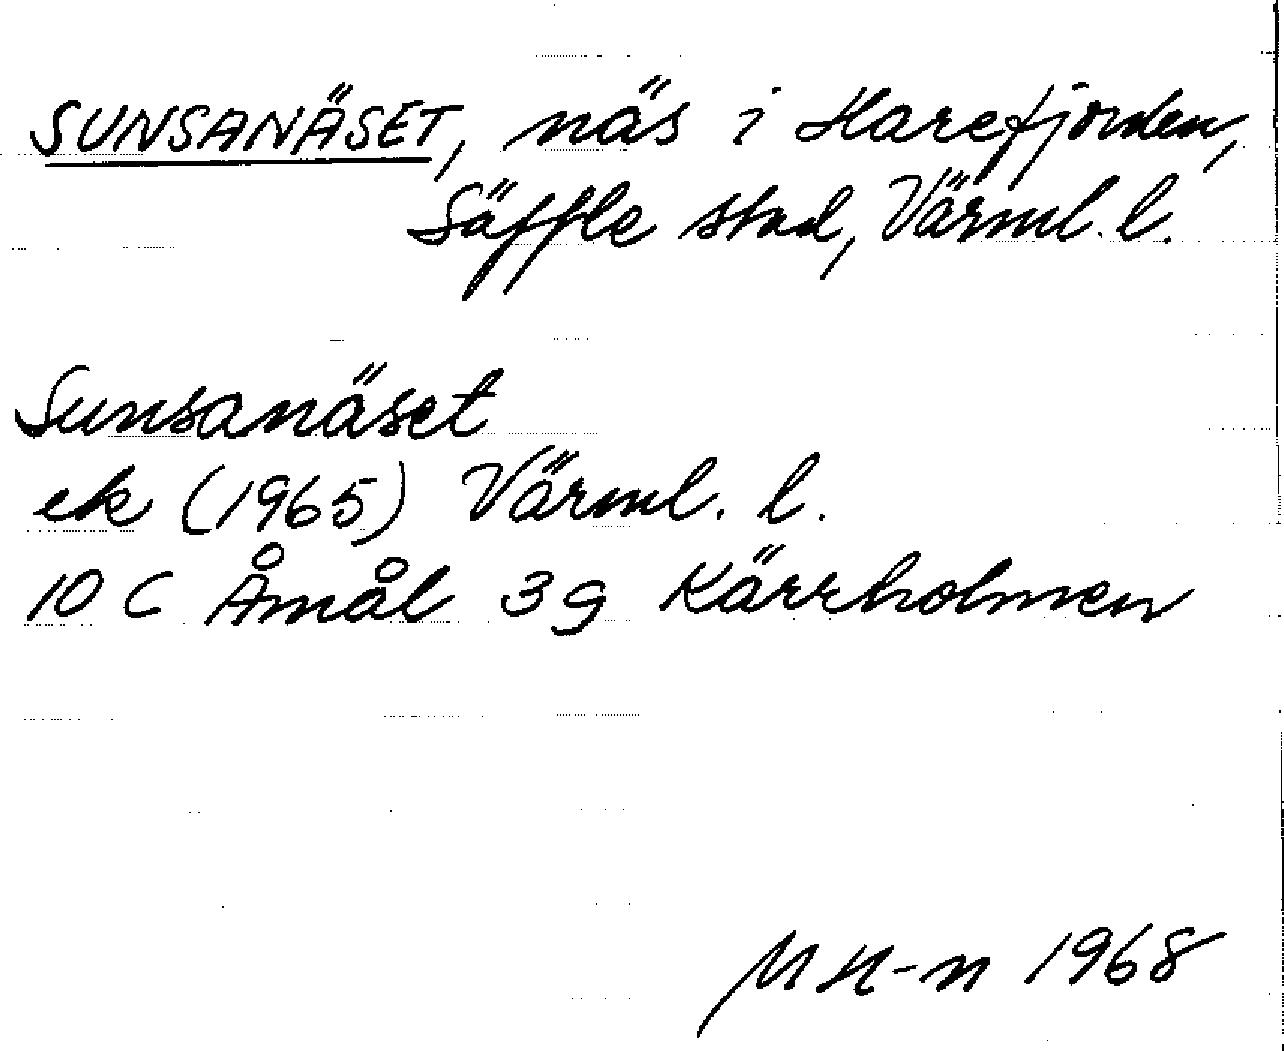 SUNSANÄSET, näs i Harefjorden,
Säffle stad, Värml. l.
Sunsanäset
ek (1965) Värml. l.
10 C Åmål 3g Kärrholmen
MH-n 1968